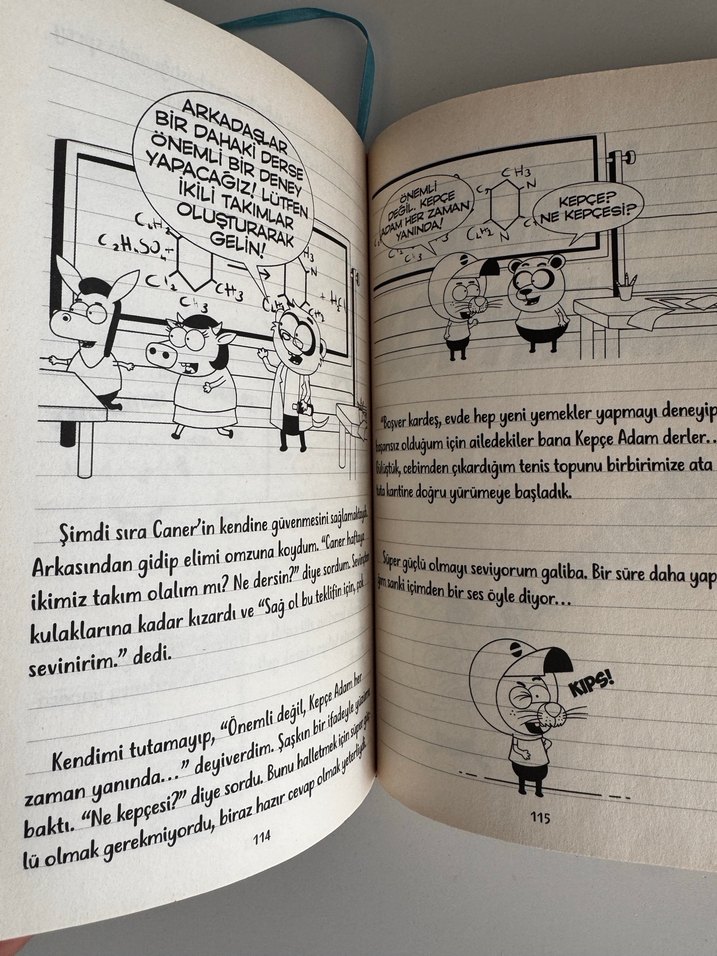 ARKADAŞLAR
BİR DAHAKİ DERSE
ÖNEMLİ BİR DENEY
YAPACAĞIZ! LÜTFEN
İKİLİ TAKIMLAR
OLUŞTURARAK
GELİN!
C₂H₅SO₄+
CH₃
Şimdi sıra Caner'in kendine güvenmesini
Arkasından gidip elimi omzuna koydum. "Caner haftaya
ikimiz takım olalım mı? Ne dersin?" diye sordum. Sevinçten
kulaklarına kadar kızardı ve "Sağ ol bu teklifin için, çok
sevinirim." dedi.
Kendimi tutamayıp, "Önemli değil, Kepçe Adam her
zaman yanında..." deyiverdim. Şaşkın bir ifadeyle yüzüme
baktı. "Ne kepçesi?" diye sordu. Bunu halletmek için süper güç-
lü olmak gerekmiyordu, biraz hazır cevap olmak yeterliydi.
114
ÖNEMLİ
DEĞİL. KEPÇE
ADAM HER ZAMAN
YANINDA!
KEPÇE?
NE KEPÇESİ?
CH₃
N
N
"Boşver kardeş, evde hep yeni yemekler yapmayı deneyip
başarısız olduğum için ailedekiler bana Kepçe Adam derler..
Gülüştük, cebimden çıkardığım tenis topunu birbirimize ata
tuta kantine doğru yürümeye başladık.
Süper güçlü olmayı seviyorum galiba. Bir süre daha yap
sanki içimden bir ses öyle diyor...
KIPS!
115